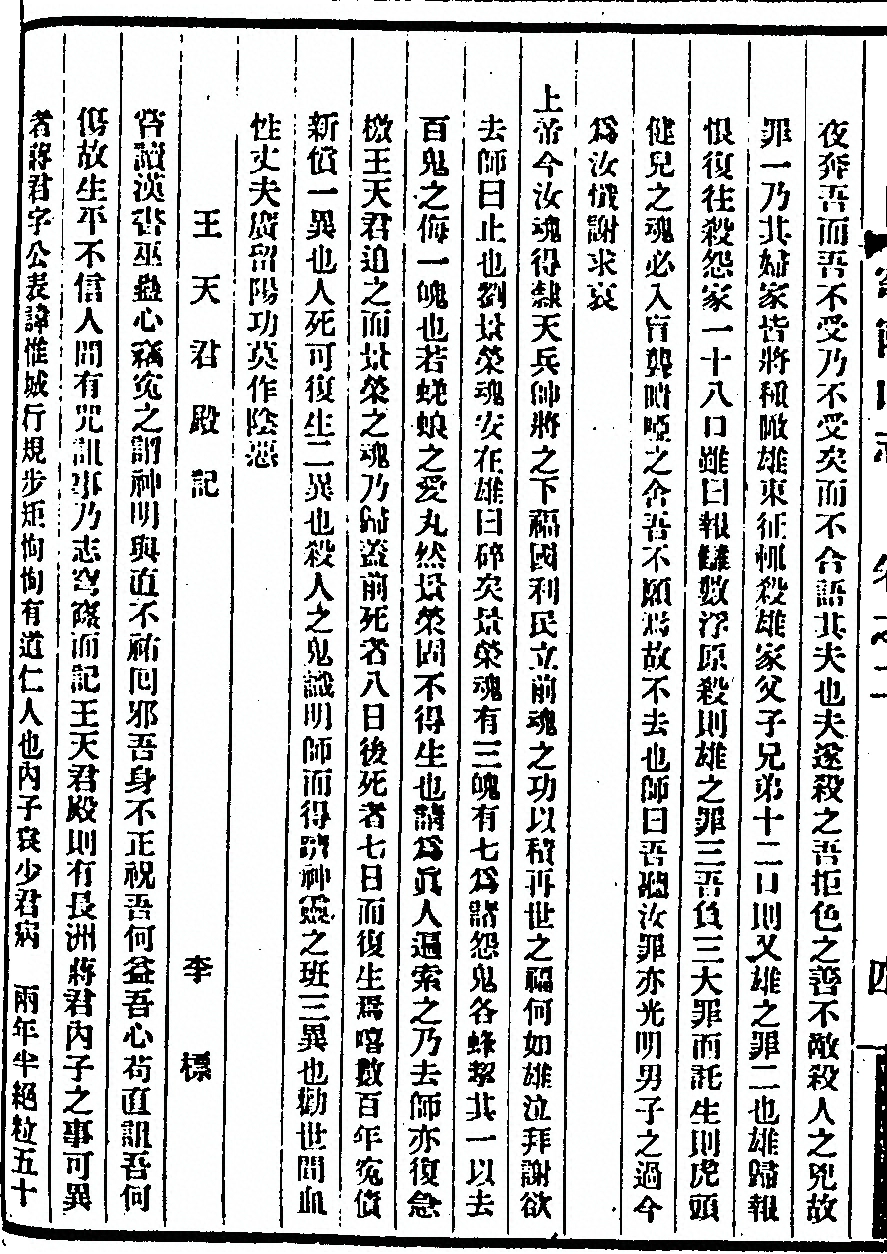 卷之二
四
夜奔吾而吾不受乃不受矣而不合語其夫也夫遂殺之吾拒色之善不敵殺人之兇故
罪一乃其婦家皆將種瞰雄東征輒殺雄家父子兄弟十二口則又雄之罪二也雄歸報
恨復往殺怨家一十八口雖曰報讎數浮原殺則雄之罪三吾負三大罪而託生則虎頭
健兒之魂必入盲聾喑啞之舍吾不願焉故不去也師曰吾聽汝罪亦光明男子之過今
爲汝懺謝求哀
上帝今汝魂得隸天兵帥將之下福國利民立前魂之功以積再世之福何如雄泣拜謝欲
去師曰止也劉景榮魂安在雄曰碎矣景榮魂有三魄有七爲諸怨鬼各蜂挈其一以去
百鬼之侮一魄也若蜣蜋之愛丸然景榮固不得生也請爲眞人遍索之乃去師亦復急
檄王天君追之而景榮之魂乃歸蓋前死者八日後死者七日而復生焉嘻數百年寃債
新償一異也人死可復生二異也殺人之鬼識明師而得躋神靈之班三異也勸世間血
性丈夫廣留陽功莫作陰惡
王天君殿記
李標
嘗讀漢書巫蠱心竊寃之謂神明與直不祐回邪吾身不正祝吾何益吾心苟直詛吾何
傷故生平不信人間有咒詛事乃志穹窿而記王天君殿則有長洲蔣君內子之事可異
者蔣君字公表諱惟城行規步矩恂恂有道仁人也內子袁少君病 兩年半絕粒五十